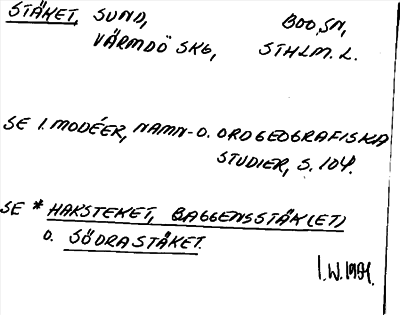 STÄKET, SUND, BOO, SN,
VÄRMDÖ SKG, STHLM. L.
SE I. MODÉER, NAMN- O. ORDGEOGRAFISKA
STUDIER, S. 104.
SE * HAKSTEKET, BAGGENSSTÄK(ET)
O. SÖDRA STÄKET.
I.W. 1991.